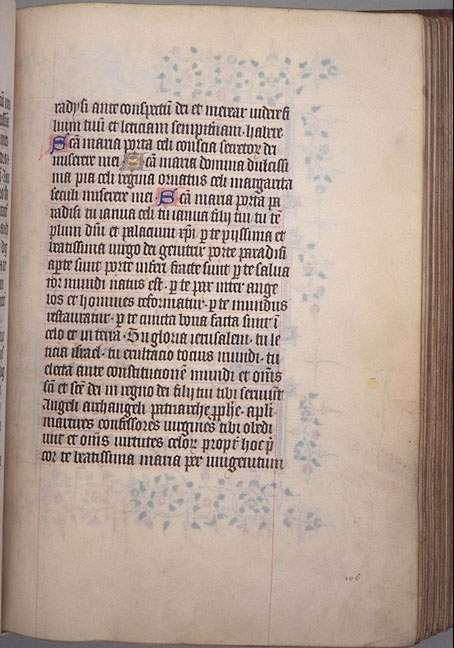 radysi ante conspectū dei et merear videre fi
lium tuū et leticiam sempit̄nam habere
Sc̄a maria porta celi conscia secretor̄ dei
miserere mei Sc̄a maria domina dulcissi
ma pia celi regina ornatus celi margarita
seculi miserere mei Sc̄a maria porta pa
radisi tu ianua celi tu ianua filij tui tu tē
plum dn̄i et palacium xp̄i p̱ te pyssima et
beatissima uirgo dei genitrix porte paradisi
apte sunt porte inferi fracte sunt p̱ te salua
tor mundi natus est · p̱ te pax inter ange
los et homines reformatur · p̱ te mundus
restauratur · p̱ te cuncta bona facta sunt ī
celo et in terra · Tu gloria ierusalem · tu le
ticia israel · tu exultacio tocius mundi · tu
electa ante constitucionē mundi et om̄s
sc̄i et sc̄e dei in regno dei filij tui tibi seruiūt
Angeli archangeli patriarche p̱phe · ap̄li ·
martires confessores uirgines tibi obedi
unt et om̄s uirtutes celor̄ propt̄ hoc p̄
cor te beatissima maria per unigenitum
106